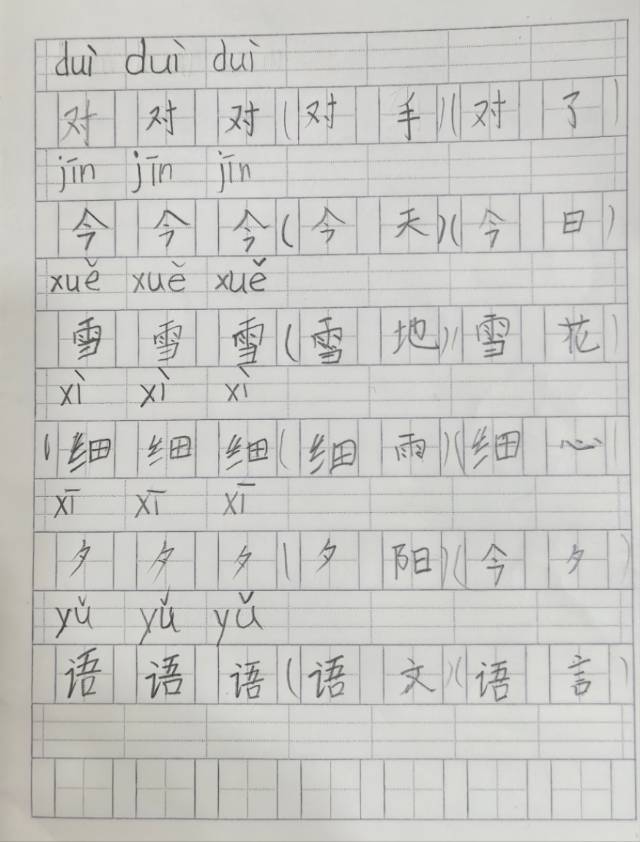 duì duì duì
对 对 对 (对 手) (对 了)
jīn jīn jīn
今 今 今 (今 天) (今 日)
xuě xuě xuě
雪 雪 雪 (雪 地) (雪 花)
xì xì xì
(细 细 细 (细 雨) (细 心)
xī xī xī
夕 夕 夕 (夕 阳) (今 夕)
yǔ yǔ yǔ
语 语 语 (语 文) (语 言)